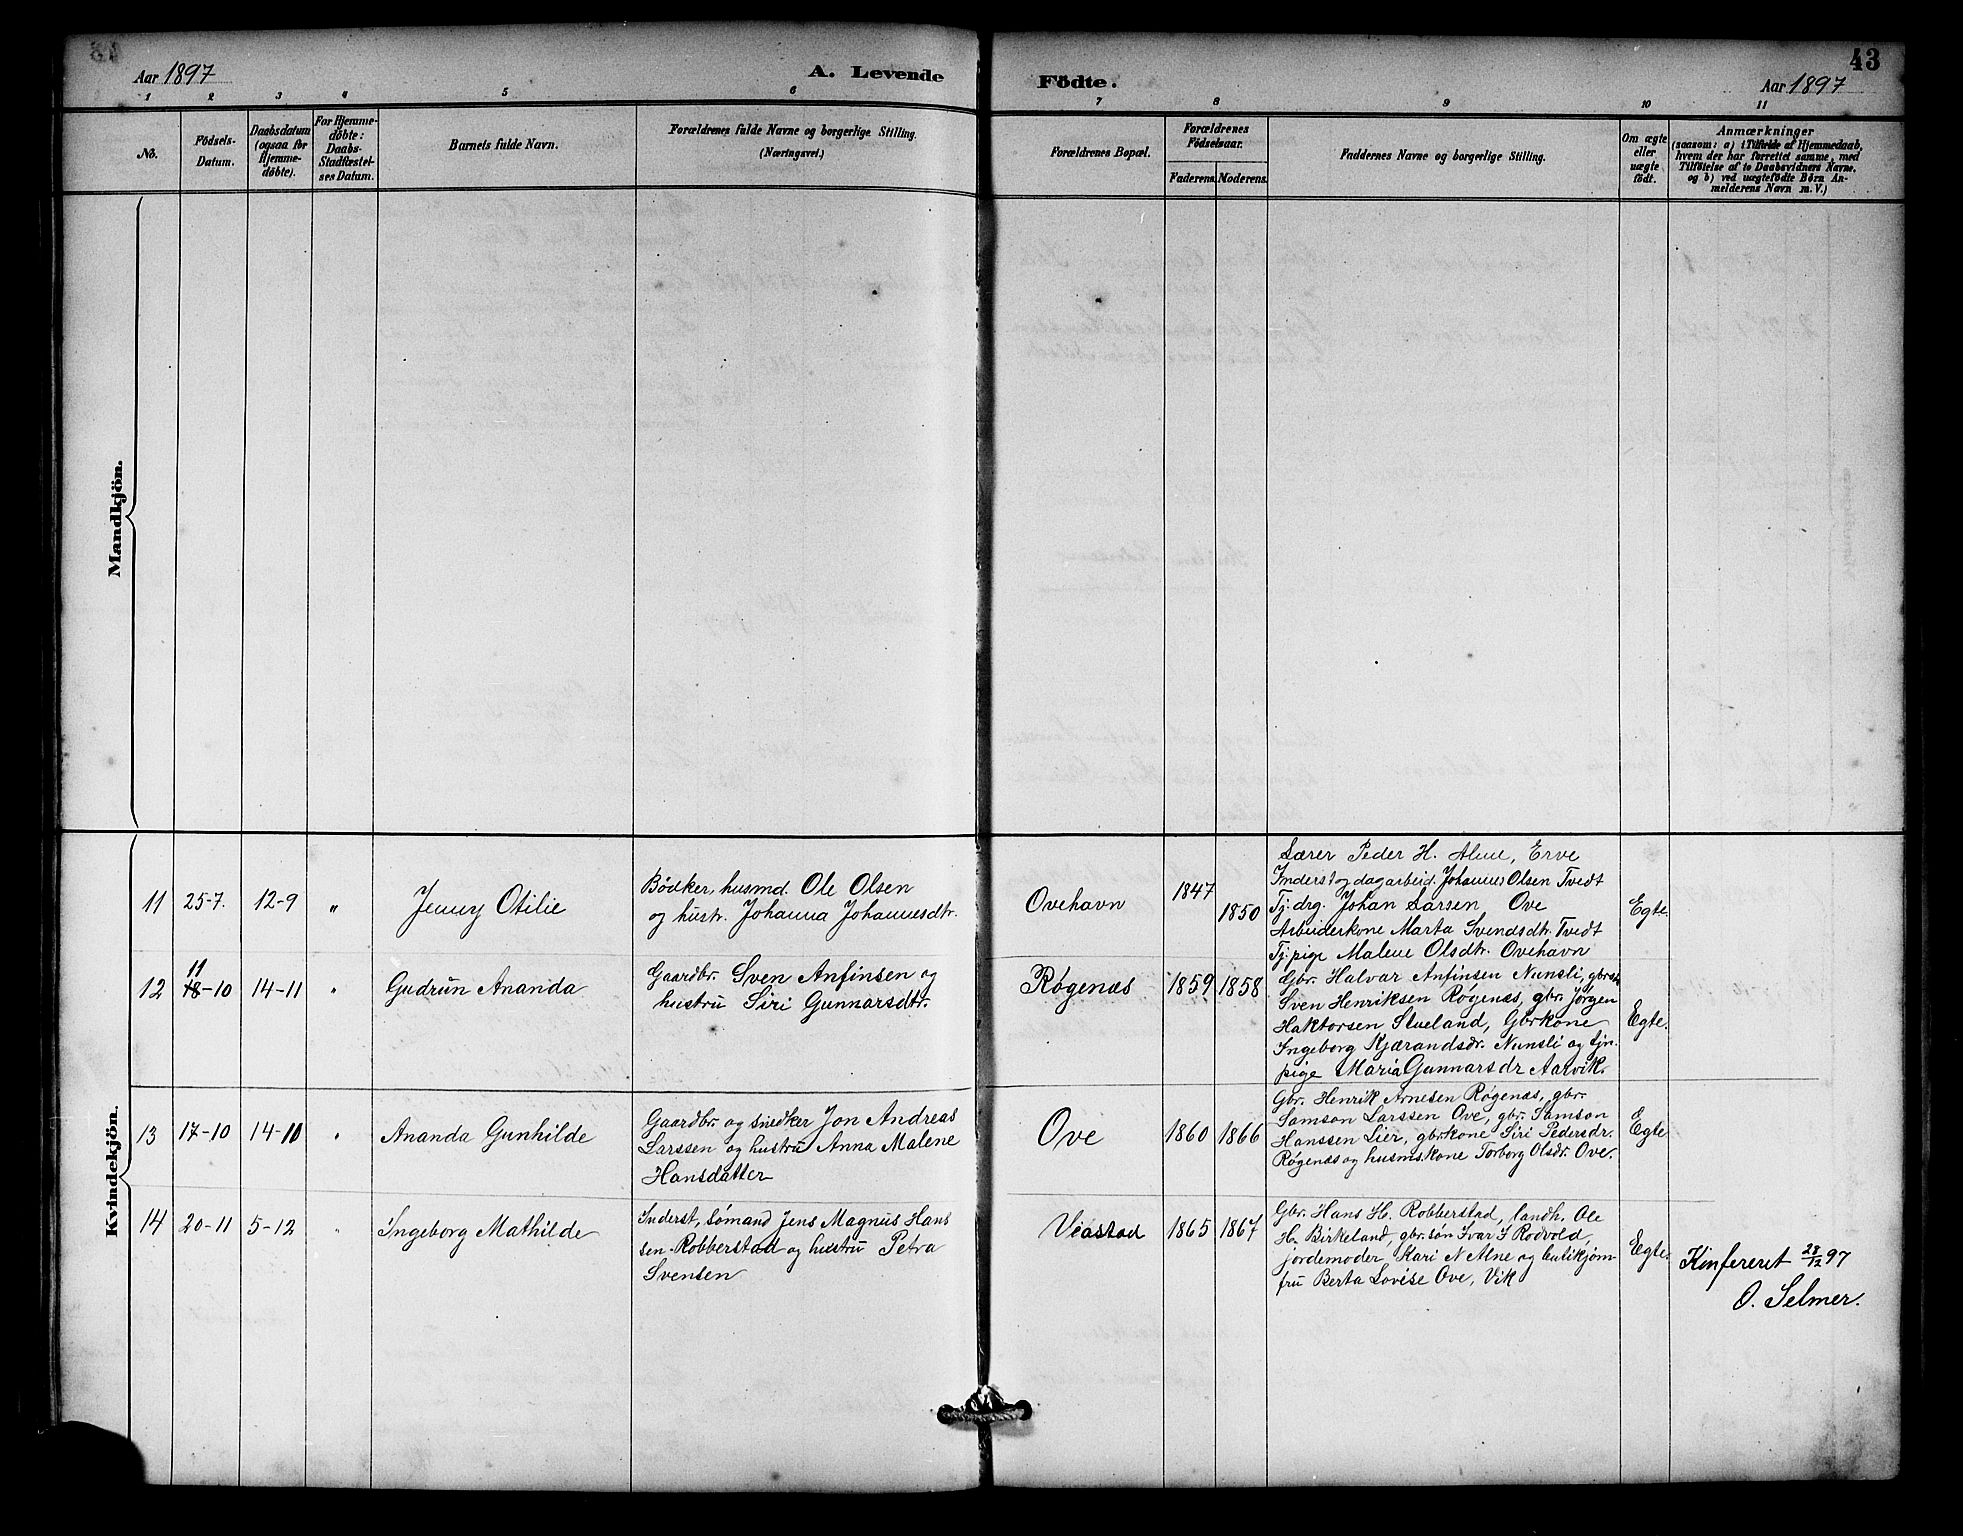 Aar 1897
A. Levende
Födte.
Aar 1897
43
1 2 3 4 5 6 7 8 9 10 11
No.
Födsels-
Datum.
Daabsdatum
(ogsaa for
Hjemme-
döbte).
For Hjemme-
döbte:
Daabs-
Stadfæstel-
ses Datum.
Barnets fulde Navn.
Forældrenes fulde Navne og borgerlige Stilling.
(Næringsvei.)
Forældrenes Bopæl.
Forældrenes
Födselsaar.
Faderens.
Moderens.
Faddernes Navne og borgerlige Stilling.
Om ægte
eller
uægte
født.
Anmærkninger
(saasom: a) i Tilfælde af Hjemmedaab,
hvem der har forrettet samme, med
Tilföielse af to Daabsvidners Navne,
og b) ved uægtefödte Börn An-
melderens Navn m. V.)
Mandkjön.
Kvindekjön.
11
25-7.
12-9
"
Jenny Otilie
Bödker, husmd. Ole Olsen
og hustr. Johanna Johannesdtr.
Ovehavn
1847
1850
Lærer Peder H. Alne, Erve
Inderst og dagarbeid. Johannes Olsen Tvedt
Tj. drg. Johan Larsen Ove
Arbeiderkone Marta Svendsdtr. Tvedt
Tj. pige Malene Olsdtr. Ovehavn
Egte.
12
11
18-10
14-11
"
Gudrun Ananda
Gaardbr. Sven Anfinsen og
hustru Siri Gunnarsdtr.
Røgenæs
1859
1858
Gbr. Halvar Anfinsen Nunsli, gbrsøn
Sven Henriksen Røgenæs, gbr. Jørgen
Haktorsen Stueland, Gbrkone
Ingeborg Kjærandsdr. Nunsli og tjn.
pige Maria Gunnarsdr Aarvik.
Egte.
13
17-10
14-11
"
Ananda Gunhilde
Gaardbr. og snedker Jon Andreas
Larssen og hustru Anna Malene
Hansdatter
Ove
1860
1866
Gbr. Henrik Arnesen Røgenæs, gbr.
Samson Larssen Ove, gbr. Samson
Hanssen Lier, gbrkone Siri Pedersdr.
Røgenæs og husms.kone Torborg Olsdr. Ove.
Egte
14
20-11
5-12
"
Ingeborg Mathilde
Inderst, sømand Jens Magnus Hans
sen Robberstad og hustru Petra
Svensen
Veastad
1865
1867
Gbr. Hans H. Robberstad, landh. Ole
H. Birkeland, gbr.søn Ivar I Rødvold,
jordemoder, Kari N Alne og butikjom-
fru Berta Lovise Ove, Vik
Egte.
Konfereret 28/12 97
O. Selmer.